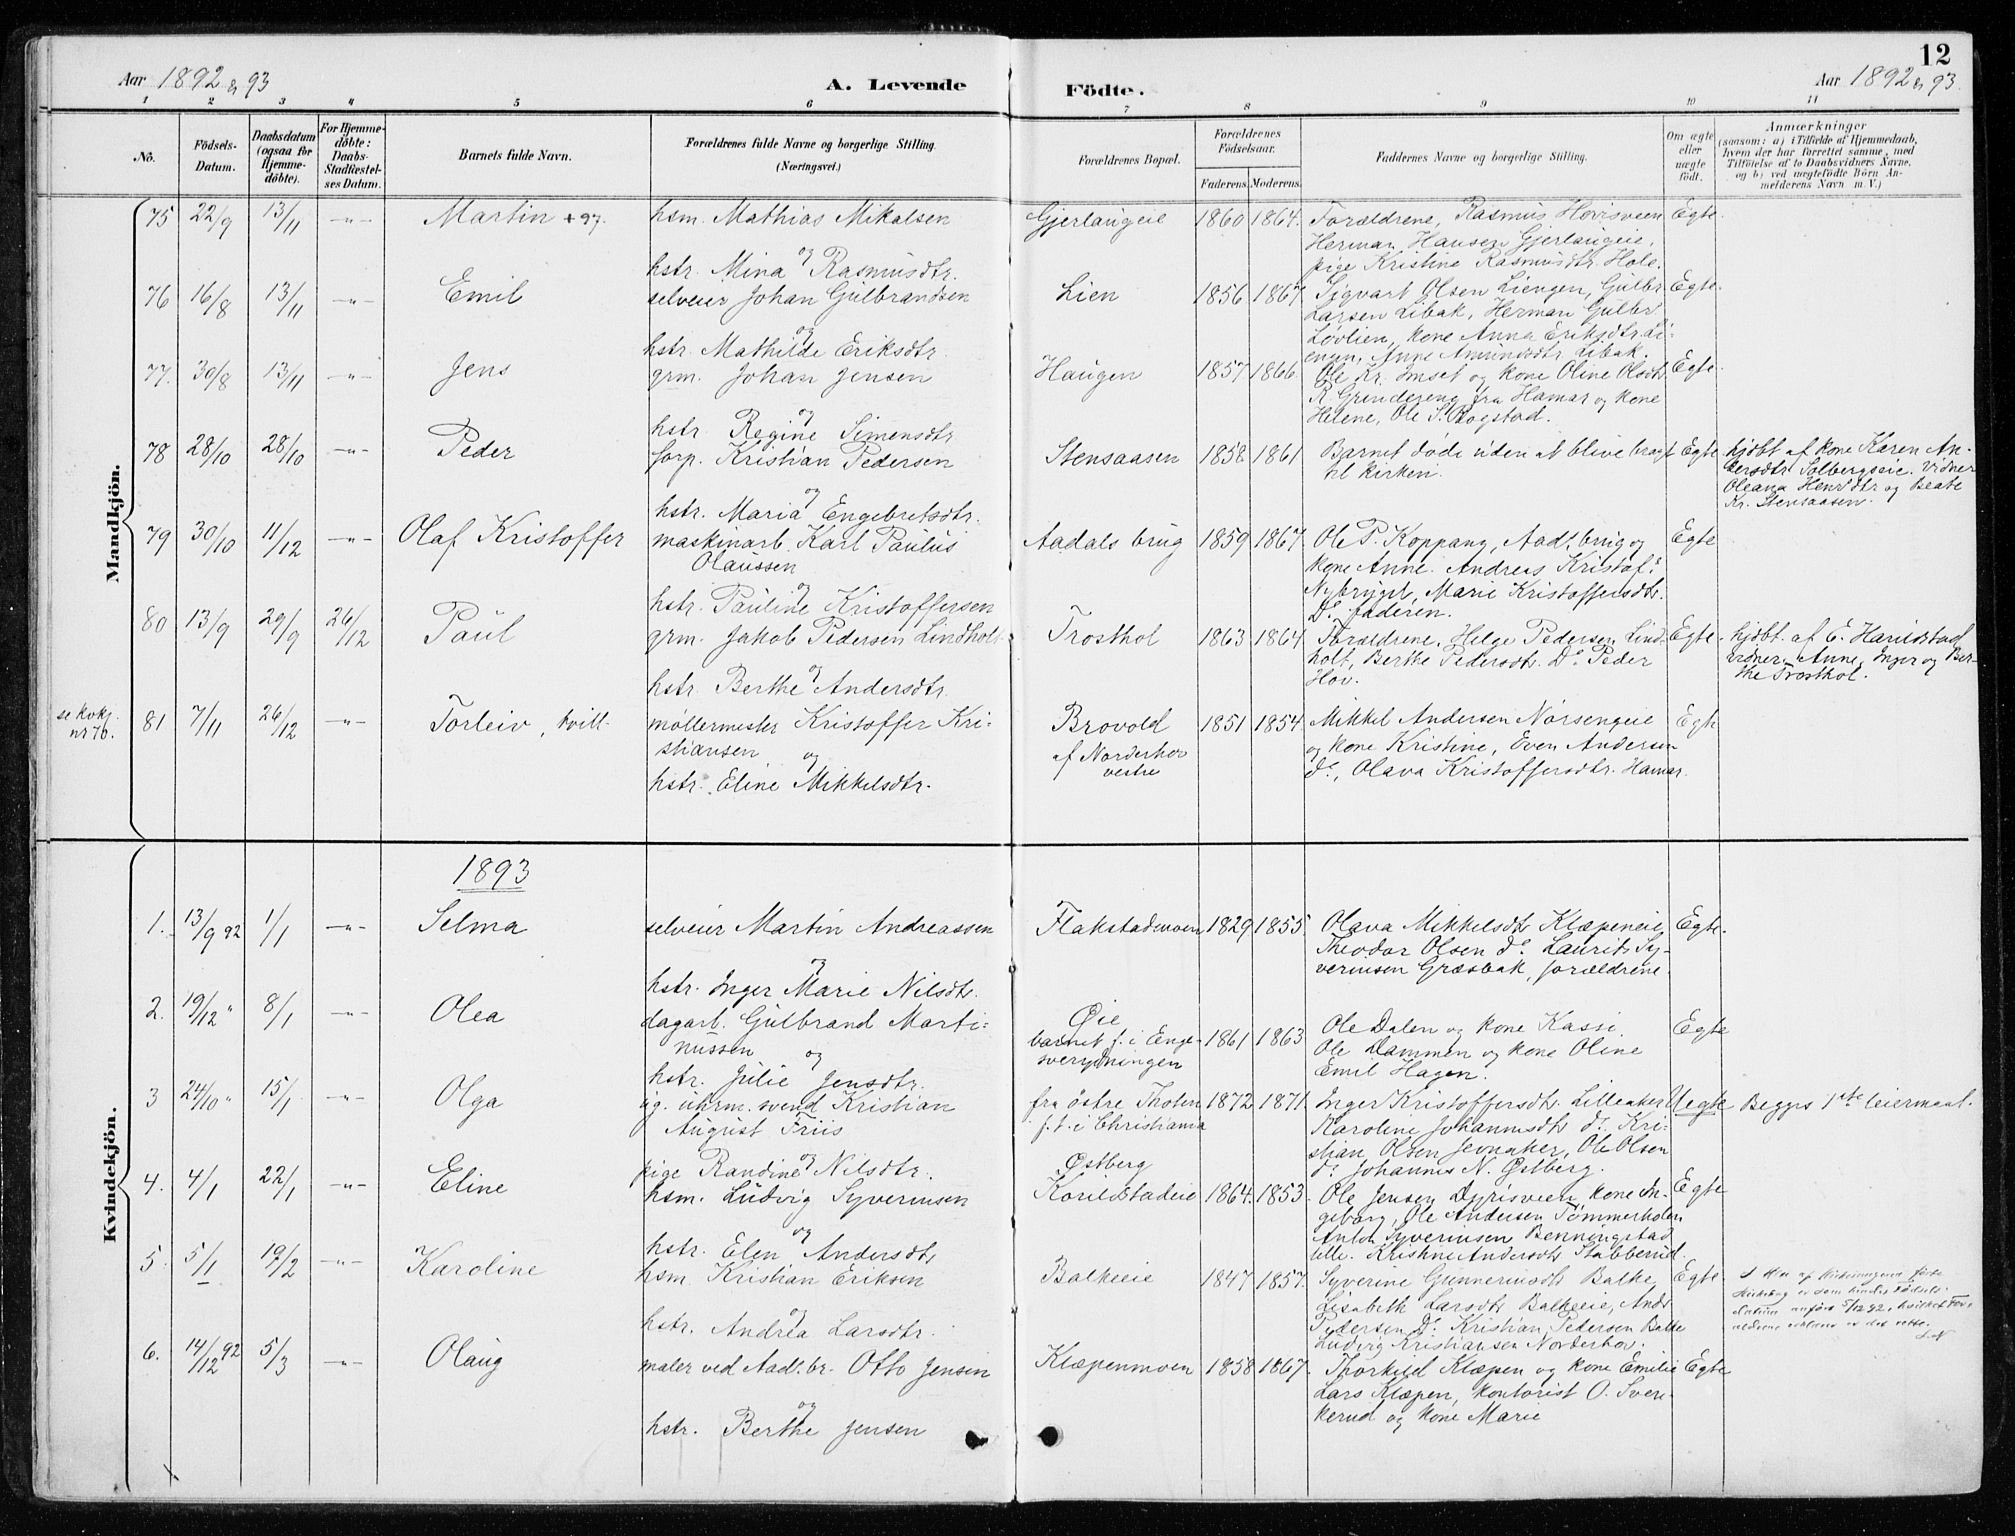 Aar 1892 & 93
A. Levende
Födte.
12
Aar 1892 & 93.
1 2 3 4 5 6 7 8 9 10 11
No.
Födsels-
Datum.
Daabsdatum
(ogsaa for
Hjemme-
döbte).
For Hjemme-
döbte:
Daabs-
Stadfæstel-
ses Datum.
Barnets fulde Navn.
Forældrenes fulde Navne og borgerlige Stilling.
(Næringsvei.)
Forældrenes Bopæl.
Forældrenes
Födselsaar.
Faderens. Moderens.
Faddernes Navne og borgerlige Stilling.
Om ægte
eller
uægte
födt.
Anmærkninger
(saasom: a) i Tilfælde af Hjemmedaab,
hvem der har forrettet samme, med
Tilföielse af to Daabsvidners Navne,
og b) ved uægtefödte Börn An-
melderens Navn m. V.)
Mandkjön.
75 22/9 13/11 -"- Martin +97. hsm. Mathias Mikalsen
og
hstr. Mina Rasmusdtr.
Gjerlaugeie 1860 1864. Forældrene, Rasmus Hovisveen Egte.
Herman Hansen Gjerlaugeie,
pige Kristine Rasmusdtr. Hole.
76 16/8 13/11 -"- Emil selveier Johan Gulbrandsen
og
hstr. Mathilde Eriksdtr.
Lien 1856 1867. Sigvart Olsen Liengen, Gulbr Egte.
Larsen Libak, Herman Gulbr
Løvlien, kone Anna Eriksdtr Li-
engen, Anne Amundsdtr Libak.
77. 30/8 13/11 -"- Jens grm. Johan Jensen
og
hstr. Regine Simensdtr
Haugen 1857 1866. Ole Kr. Imset og kone Oline Olsdtr Egte.
R. Grindereng fra Hamar og kone
Helene, Ole S. Rogstad.
78 28/10 28/10 -"- Peder forp. Kristian Pedersen
og
hstr. Maria Engebretsdtr.
Stensaasen 1858 1861 Barnet døde uden at blive bragt Egte
til kirken.
hjdbt af kone Karen An-
dersdtr Solbergseie. Vidner
Oleana Henrdtr og Beate
Kr. Stensaasen.
79 30/10 11/12 -"- Olaf Kristoffer maskinarb. Karl Paulus
Olaussen
og
hstr. Pauline Kristoffersen
Aadals brug 1859 1867 Ole P. Koppang, Aad. brug og Egte
kone Anne. Andreas Kristof.
Nybruget, Marie Kristoffersdtr.
Do. faderen.
80 13/9 29/9 26/12 Paul grm. Jakob Pedersen Lindholt
og
hstr. Berthe Andersdtr.
Trosthol 1863 1864 Forældrene, Helge Pedersen Lind- Egte.
holt, Berthe Pedersdtr. Do. Peder
Hov.
hjdbt. af E. Harildstad
vidner Anne, Inger og Ber-
the Trosthol.
se kvkj.
nr 76.
81 7/11 26/12 -"- Torleiv, tvill- møllermester Kristoffer Kri-
stiansen og
hstr. Eline Mikkelsdtr.
Brovold
af Norderhov
vestre
1851 1854. Mikkel Andersen Norsengeie Egte
og kone Kristine, Even Andersen
do., Olava Kristoffersdtr. Hamar.
Kvindekjön.
1893
1. 13/9 92 1/1 -"- Selma selveier Martin Andreassen
og
hstr. Inger Marie Nilsdtr.
Flakstadmoen 1829 1855. Olava Mikkelsdtr Klæpeneie, Egte.
Theodor Olsen do. Laurits Sy-
verinsen Græsbak, forældrene.
2. 19/12 " 8/1 -"- Olea dagarb. Gulbrand Marti-
nussen og
hstr. Julie Jensdtr.
Øie
barnet f. i Enge-
1861 1863 Ole Dalen og kone Kassi. Egte
Ole Dammen og kone Oline
Emil Hagen.
3 24/10 " 15/1 -"- Olga ug. uhrm. svend Kristian
August Friis
og
pige Randine Nilsdtr.
fra østre Thoten
f. t. i Christiania
Østberg
1872 1871. Inger Kristoffersdtr. Lilleaker Uegte Begges 1ste leiermaal.
Karoline Johannesdtr do. Kri-
stian Olsen Jevnaker, Ole Olsen
do. Johannes N. Østberg.
4. 4/1 22/1 -"- Eline hsm. Ludvig Syverinsen
og
hstr. Elen Andersdtr
Korildstadeie 1864. 1853. Ole Jensen Dyrisveen, kone In- Egte
geborg, Ole Andersen Tømmerholen
Anton Syverinsen Benningstad
lille. Kristine Andersdtr Stabberud.
5. 5/1 19/2 -"- Karoline hsm. Kristian Eriksen
og
hstr. Andrea Larsdtr.
Balkeeie 1847 1857. Syverine Gunnerinsdtr Balke, Egte.
Lisabeth Larsdtr Balkeeie, Andr
Pedersen do. Kristian Pedersen Balke
Ludvig Kristiansen Norderhov.
6. 14/12 92 5/3 -"- Olaug maler ved Aad. br. Otto Jensen
og
hstr. Berthe Jensen
Klæpenmoen 1858 1867. Thorkild Klæpen og kone Emilie Egte
Lars Klæpen, kontorist O. Sven-
kerud og kone Marie